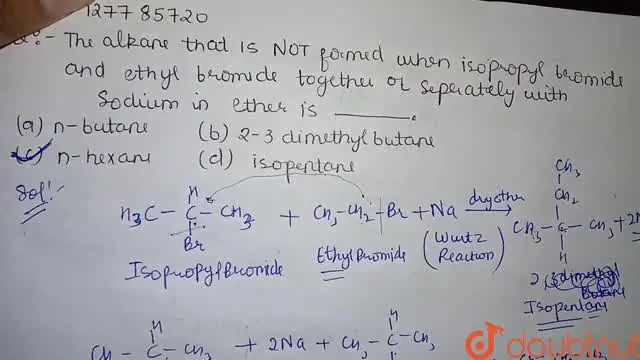 1277 85720
Q:- The alkane that is NOT formed when isopropyl bromide
and ethyl bromide together or seperately with
Sodium in ether is ______.
(a) n-butane (b) 2-3 dimethyl butane
(c) n-hexane (d) isopentane
Sol:-
CH3
CH2
H
H3C - C - CH3 + CH3-CH2-Br + Na dry ether CH3 - C - CH3 + 2N
Br
H
IsopropylBromide EthylBromide (Wurtz Reaction)
Isopentane
H H
CH - C - CH3 + 2Na + CH3 - C - CH3
doubtnut